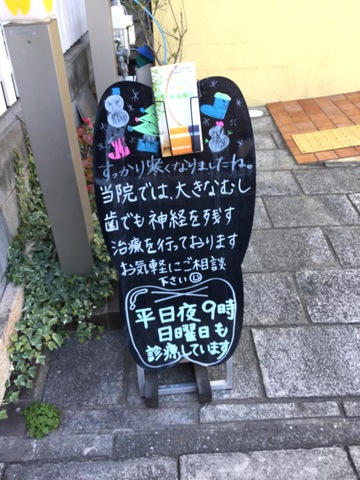 すっかり寒くなりましたね。
当院では、大きなむし
歯でも神経を残す
治療を行っております
お気軽にご相談
下さい
平日夜9時
日曜日も
診療しています